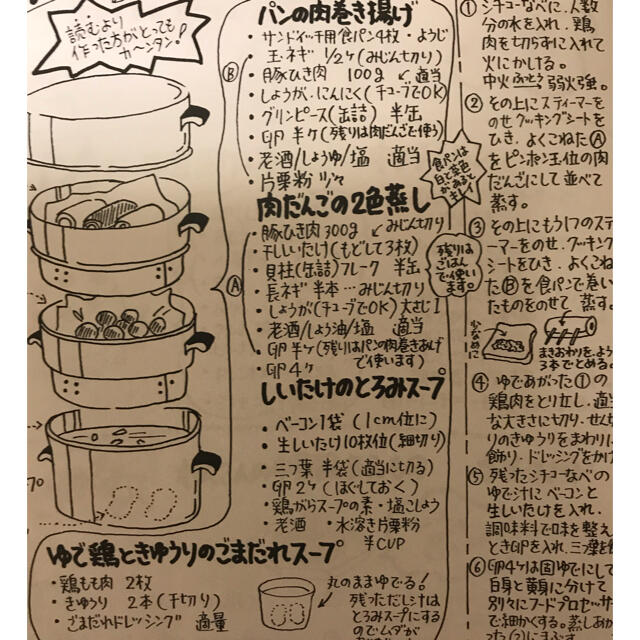 読むより
作った方がとっても
カ〜ンタン!
パンの肉巻き揚げ
・サンドイッチ用食パン4枚・ようじ
玉ネギ 1/2ヶ(みじん切り)
Ⓑ
・豚ひき肉 100g 適当
・しょうが、にんにく(チューブでOK)
・グリンピース(缶詰) 半缶
・卵 半ヶ(残りは肉だんごで使う)
・老酒/しょうゆ/塩 適当
・片栗粉 少々
食パンは
白と茶色
があると
キレイ
肉だんごの2色蒸し
・豚ひき肉300g みじん切り
・干ししいたけ(もどして3枚)
・貝柱(缶詰)フレーク 半缶
Ⓐ
・長ネギ 半本…みじん切り
・しょうが(チューブでOK)大さじ1
・老酒/しょう油/塩 適当
・卵半ヶ(残りはパンの肉巻きあげ
で使います)
・卵4ヶ
残りは
ごはん
で使い
ます。
しいたけのとろみスープ
・ベーコン1袋(1cm位に)
・生しいたけ10枚位(細切り)
・三つ葉 半袋(適当に切る)
・卵2ヶ(ほぐしておく)
・鶏がらスープの素・塩こしょう
・老酒 ・水溶き片栗粉
半CUP
ゆで鶏ときゅうりのごまだれスープ
・鶏もも肉 2枚
・きゅうり 2本(千切り)
・ごまだれドレッシング 適量
丸のままゆでる!
残っただし汁は
とろみスープにする
のでムダが
① シチューなべに、人数
分の水を入れ、鶏
肉を切らずに入れて
火にかける。
中火 ふっとう 弱火強。
② その上にスティーマーを
のせ クッキングシートを
ひき、よくこねたⒶ
をピンポン玉位の肉
だんごにして並べて
蒸す。
③ その上にもう1つのステ
ィーマーをのせ、クッキン
シートをひき、よくこね
たⒷを食パンで巻い
たものをのせて 蒸す。
少なめに
まきおわりを、よう
3本でとめる。
④ ゆであがった①の
鶏肉をとり出し、適
な大きさに切り、せん
りのきゅうりをまわり
飾り、ドレッシングをか
⑤ 残ったシチューなべの
ゆで汁に ベーコンと
生しいたけを入れ、
調味料で味を整え
ときOPを入れ、三つ葉を
⑥ 卵4ヶは固ゆでにして
白身と黄身に分けて
別々にフードプロセッサ
で細かくする。蒸しあ